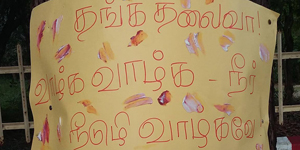 தங்க தலைவா!
வாழ்க வாழ்க - நீர்
நீடுழி வாழகவே